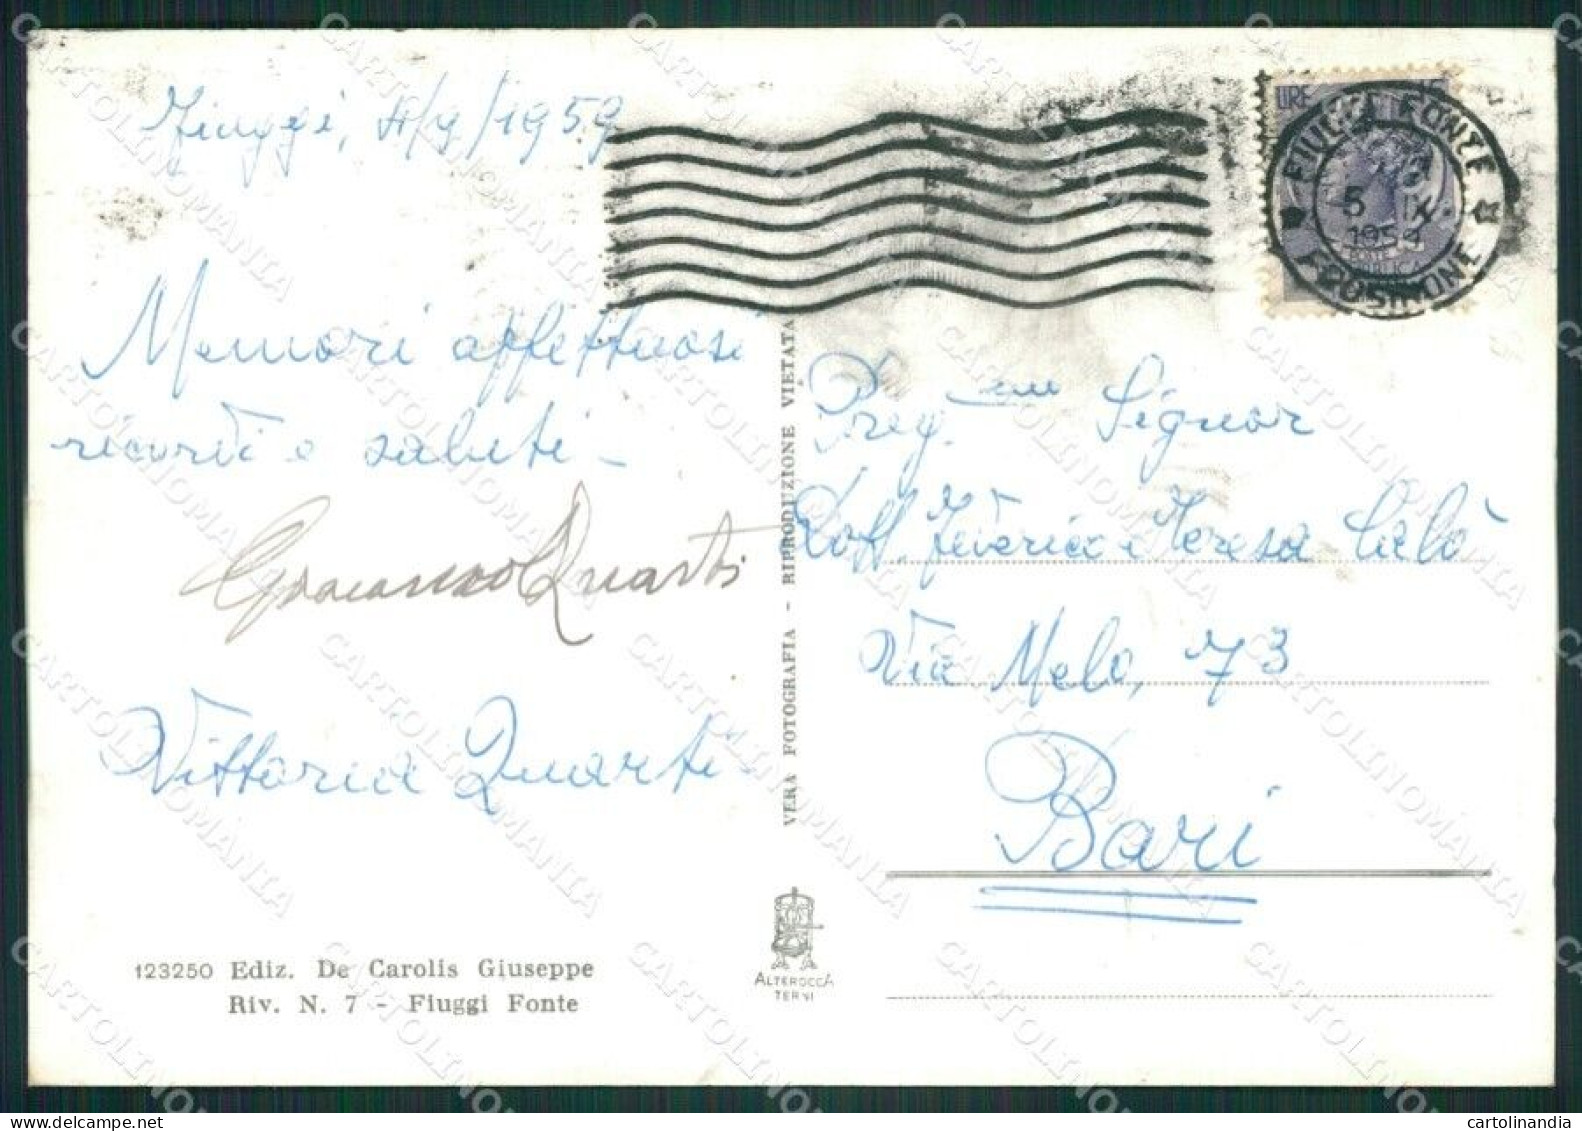 Fiuggi, 4/9/1959
Memori affettuosi
ricordi e saluti -
Quarti
Vittoria Quarti -
123250 Ediz. De Carolis Giuseppe
Riv. N. 7 - Fiuggi Fonte
VERA FOTOGRAFIA - RIPRODUZIONE VIETATA
ALTEROCCA
TERNI
LIRE
FIUGGI FONTE
5 IX
1959
FROSINONE
Preg. Signor
Dott. e Teresa
Via Melo, 73
Bari
CARTOLINOMANIA
cartolinandia